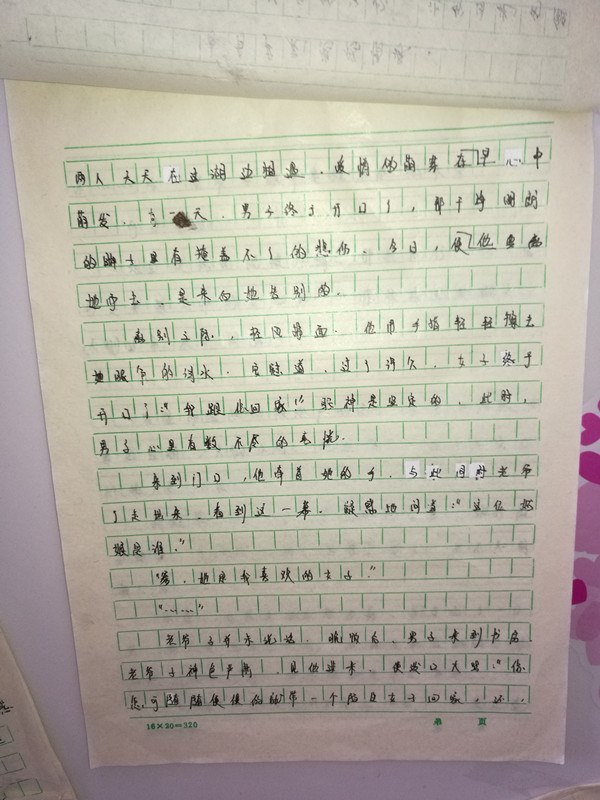 两人天天在这湖边相遇，爱情的萌芽在早心中
萌发，有一天，男子终于开口了，那干净明朗
的眸子里有掩盖不了的悲伤，今日，便他要离
她而去，是来向她告别的。
离别之际，轻风拂面。他用手指轻轻擦去
她眼角的泪水，安慰道，过了许久，女子终于
开口了：“我跟你回家！”眼神是坚定的，此时，
男子心里有数不尽的喜悦。
来到门口，他牵着她的手，与此同时老爷
子走出来，看到这一幕，疑惑地问道：“这位姑
娘是谁。”
“爹，她是我喜欢的女子。”
“……”
老爷子并未说话，晚饭后，男子来到书房
老爷子神色严肃，见他进来，便破口大骂：“你
怎可随随便便的就带一个陌生女子回家，还，
16×20=320
第 页